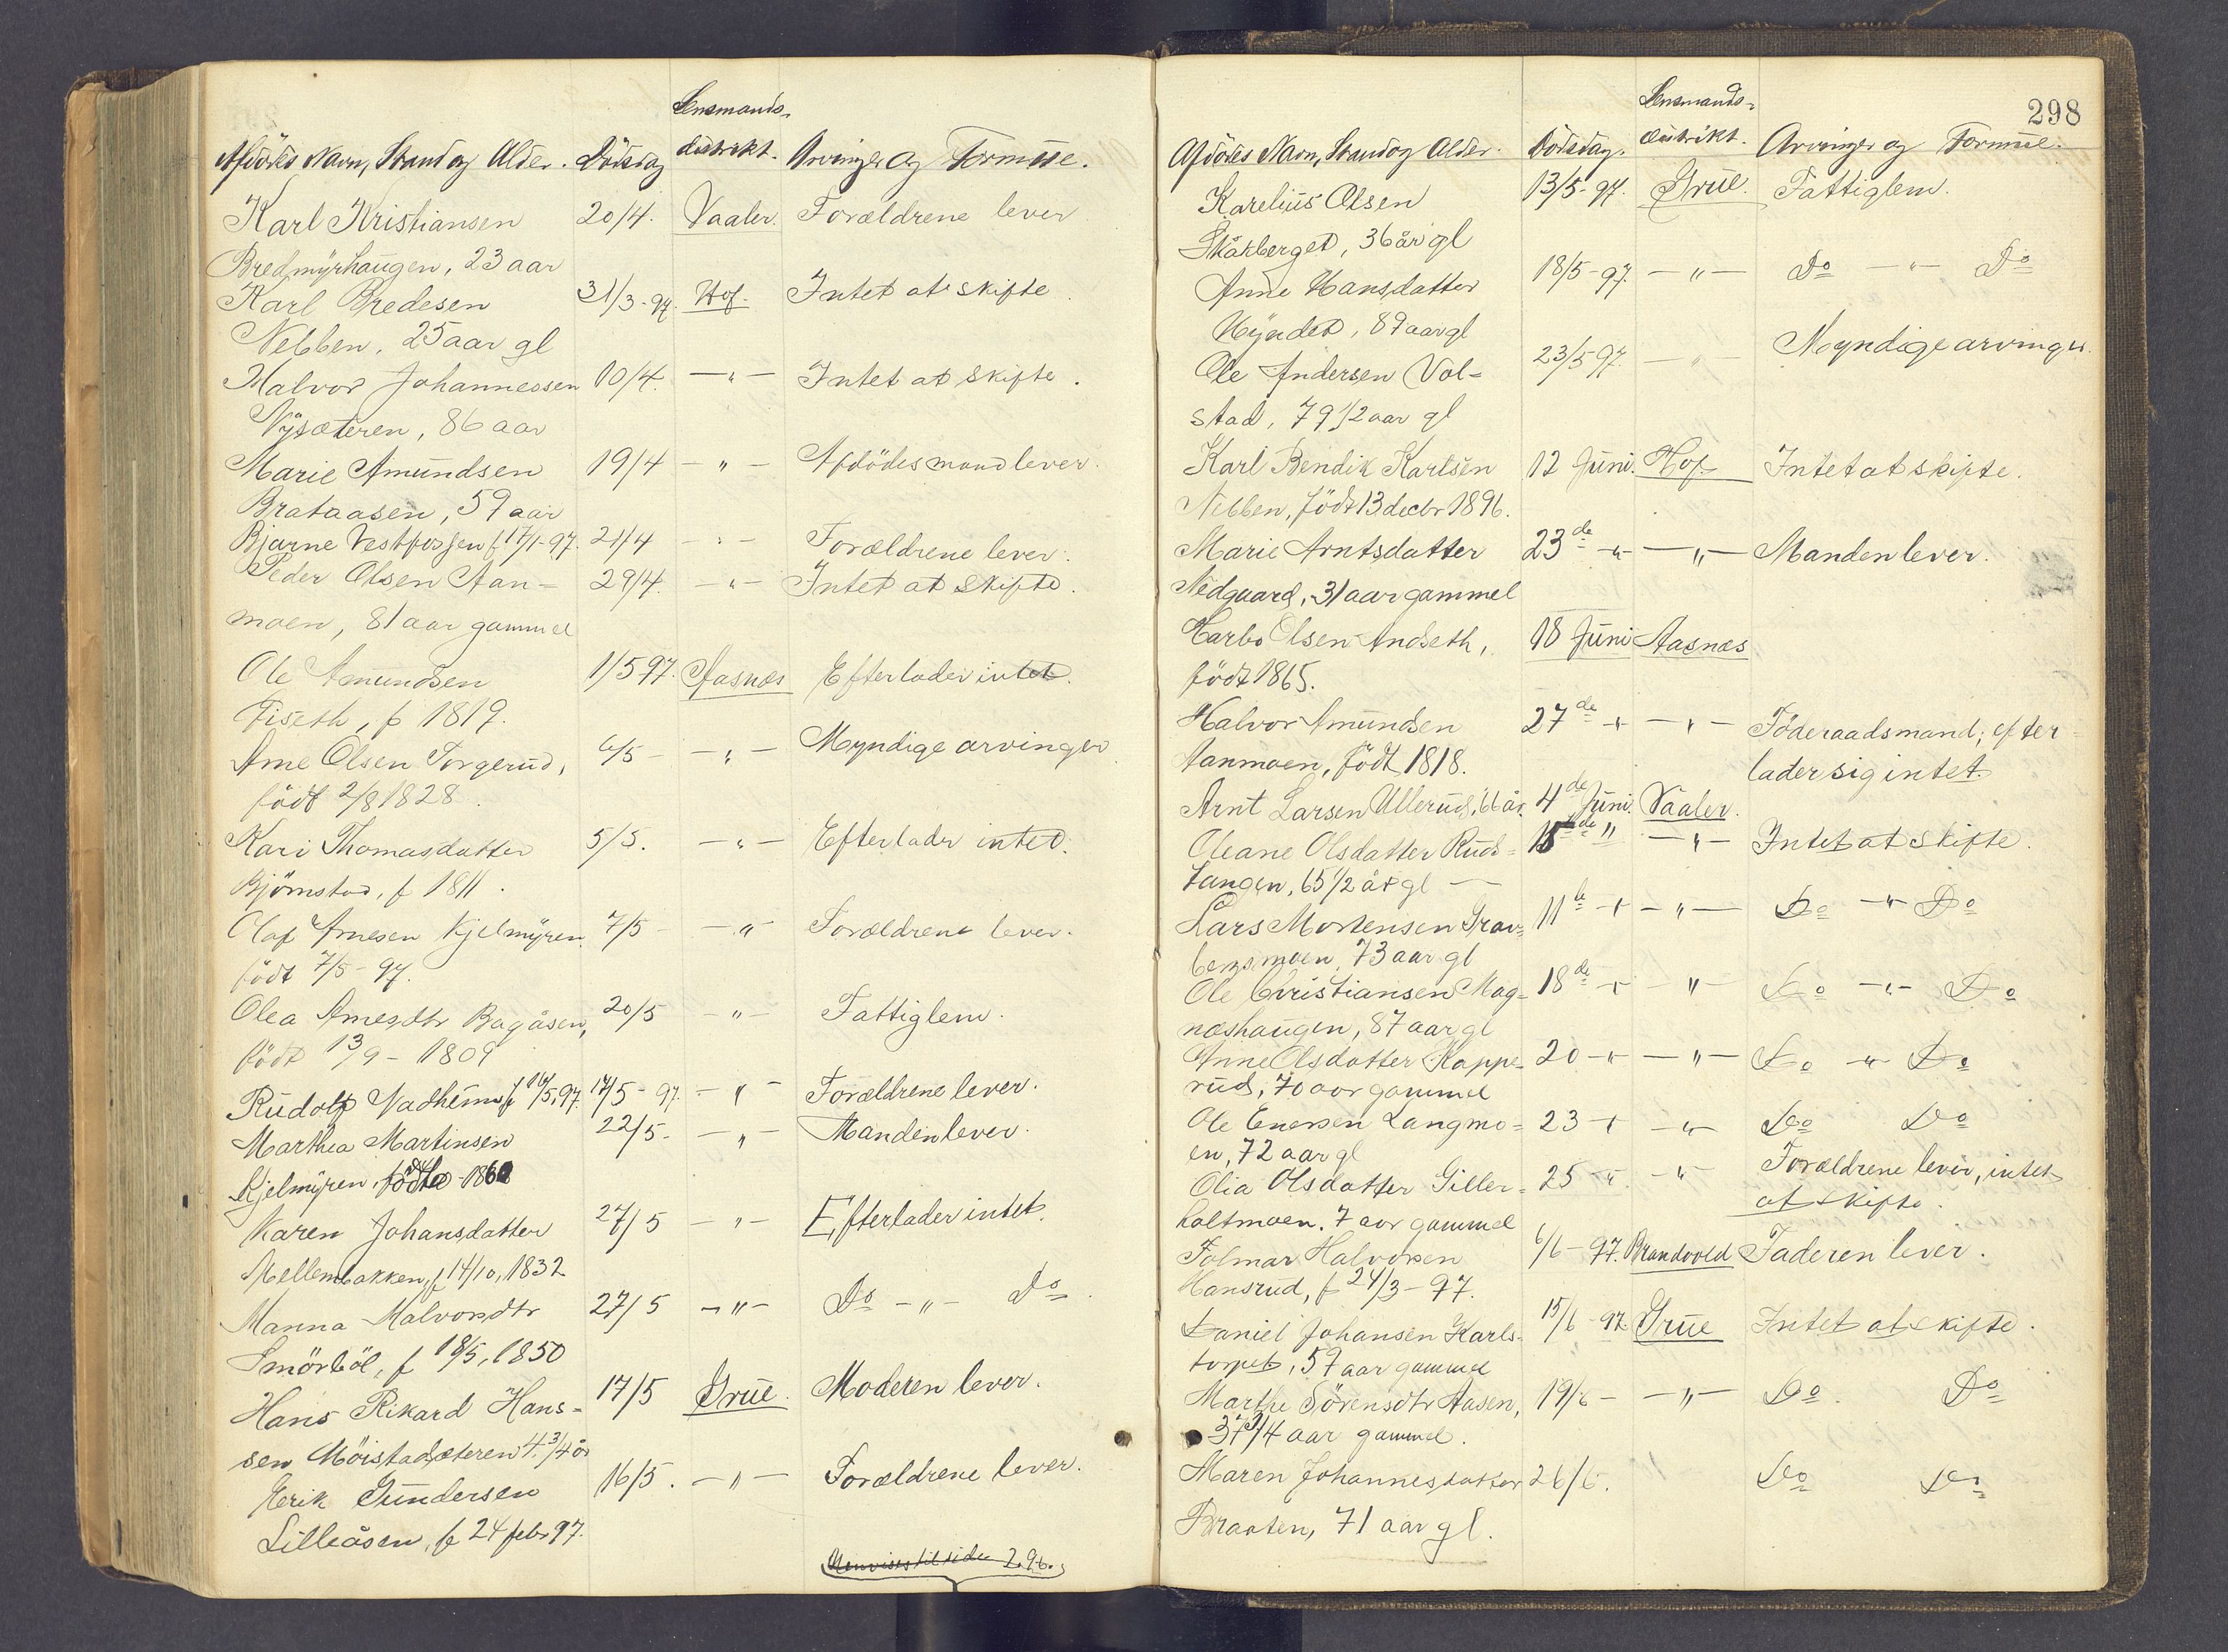 Lensmands-
Afdödes Navn, Stand og Alder. Dödsdag distrikt. Arvinger og Formue.
Karl Kristiansen 20/4. Vaaler. Forældrene lever
Bredmyrhaugen, 23 aar
Karl Bredesen 31/3-97. Hof. Intet at skifte
Nebben, 25 aar gl
Halvor Johannessen 10/4. -"- Intet at skifte.
Nysæteren, 86 aar
Marie Amundsen 19/4 -"- Afdödes mand lever.
Brataasen, 59 aar
Bjarne Vestfossen f 17/1-97. 21/4 -"- Forældrene lever.
Peder Olsen Aan- 29/4. -"- Intet at skifte.
moen, 81 aar gammel
Ole Amundsen 1/5 97. Aasnæs Efterlader intet.
Fiseth, f 1819.
Arne Olsen Torgerud, 4/5- -"- Myndige arvinger
födt 2/8 1828.
Kari Thomasdatter 5/5. -"- Efterlader intet.
Björnstad, f 1811.
Olaf Arnesen Kjelmyren 7/5- -"- Forældrene lever.
födt 7/5-97.
Olea Arnesdtr Bagåsen, 20/5 -"- Fattiglem.
födt 13/9-1809
Rudolf Nadheim f 16/5,97. 17/5-97. -"- Forældrene lever.
Marthea Martinsen 22/5. -"- Manden lever.
Kjelmyren, 1860
Karen Johansdatter 27/5 -"- Efterlader intet.
Mellembakken, f 14/10, 1832
Manna Halvorsdtr 27/5 -"- Do -"- Do.
Smörböl, f 18/5, 1850
Hans Rikard Hans- 17/5 Grue. Moderen lever.
sen Möistadsæteren 4.3/4 år
Erik Gundersen 16/5. -"- Forældrene lever.
Lilleåsen, f 24 febr 97.
Henvises til side 296.
298
Lensmands-
Afdödes Navn, Stand og Alder. Dödsdag. distrikt. Arvinger og Formue.
Karelius Olsen 13/5-97. Grue. Fattiglem.
Skåkberget, 36 år gl
Anne Hansdatter 18/5-97. -"- Do -"- Do
Hyndet, 89 aar gl
Ole Andersen Vol- 23/5 97. -"- Myndige arvinger.
stad, 79 1/2 aar gl
Karl Bendik Karlsen 12 Juni. Hof. Intet at skifte.
Nebben, födt 13 decbr 1896.
Marie Arntsdatter 23de -"- -"- Manden lever.
Nedgaard, 31 aar gammel
Harbo Olsen Andseth, 18 Juni Aasnæs
födt 1865.
Halvor Amundsen 27de -"- -"- Föderaadsmand; efter-
Aanmoen, födt 1818. lader sig intet.
Arnt Larsen Ullerud, 66 år. 4de Juni. Vaaler.
Oleane Olsdatter Ruds- 15de " -"- Intet at skifte.
tangen, 65 1/2 år gl
Lars Mortensen Grav- 11te -"- -"- Do -"- Do
bergsmoen, 73 aar gl
Ole Christiansen Mag- 18de -"- " Do -"- Do
næshaugen, 87 aar gl
Anne Olsdatter Kappe- 20 -"- -"- Do -"- Do
rud, 70 aar gammel
Ole Enersen Langmo- 23 -"- -"- Do Do
en, 72 aar gl
Olia Olsdatter Giller- 25 -"- -"- Forældrene lever, intet
holtmoen, 7 aar gammel at skifte.
Folmar Halvorsen 6/6-97. Brandvold Faderen lever.
Hansrud, f 24/3-97.
Daniel Johansen Karls- 15/6-97. Grue Intet at skifte.
torpet, 59 aar gammel
Marthe Sörensdtr Aasen, 19/6- -"- Do. Do
37 3/4 aar gammel.
Maren Johannesdatter 26/6. Do Do
Braaten, 71 aar gl.